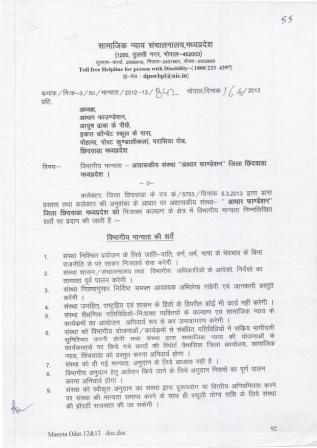 55
सामाजिक न्याय संचालनालय,मध्यप्रदेश
(1250, तुलसी नगर, भोपाल-462003)
Toll free Helpline for person with Disability-( 1800 233 4397)
ई-मेल : dpswbpl@nic.in)
क्रमांक /नि:क-3/50/मान्यता/2012-13/ 842 भोपाल,दिनांक /2013
प्रति,
अध्यक्ष,
आधार फाउण्डेशन,
आयुष ढाबा के पीछे,
इकरा कॉन्वेंट स्कूल के पास,
पोहामा, पोस्ट कुण्डालीकलां, परासिया रोड,
छिंदवाडा मध्यप्रदेश
विषय:- विभागीय मान्यता - अशासकीय संस्था "आधार फाण्डेशन" जिला छिंदवाडा
मध्यप्रदेश ।
-0-
कलेक्टर, जिला छिंदवाडा के पत्र क्र/5753/दिनांक 5.3.2013 द्वारा प्राप्त
प्रस्ताव तथा कलेक्टर की अनुशंसा के आधार पर अशासकीय संस्था- " आधार फाण्डेशन"
जिला छिंदवाडा मध्यप्रदेश को निःशक्त कल्याण के क्षेत्र में विभागीय मान्यता निम्नलिखित
शर्तो पर प्रदान की जाती है :-
विभागीय मान्यता की शर्तें
1. संस्था निश्चित प्रयोजन के लिये जाति-पाति, वर्ग, धर्म, भाषा के भेदभाव के बिना
राजनीति से परे रहकर निःस्वार्थ सेवा करेगी ।
2. संस्था शासन/संचालनालय तथा विभागीय अधिकारियों के आदेशों, निर्देशों का
तत्परता पूर्व पालन करेगी ।
3. संस्था नियमानुसार निर्दिष्ट समस्त आवश्यक अभिलेख रखेगी एवं जानकारी प्रस्तुत
करेगी ।
4. संस्था जनहित, राष्ट्रहित एवं शासन के हितों के विपरीत कोई भी कार्य नहीं करेगी ।
5. संस्था शैक्षणिक गतिविधियों-निःशक्त व्यक्तियों के कल्याण एवं सामाजिक न्याय के
कार्यक्रमों का आयोजन अनिवार्य रूप से कर जनजागरण करेगी ।
6. संस्था को विभागीय योजनाओं/कार्यक्रमों से संबंधित गतिविधियों में सक्रिय भागीदारी
सुनिश्चित करनी होगी तथा संस्था द्वारा सामाजिक न्याय की योजनाओं के
कार्यकलापों पर किये गये कार्यों की रिपोर्ट त्रैमासिक जिला कार्यालय, सामाजिक
न्याय, छिंदवाडा को प्रस्तुत करना अनिवार्य होगा ।
7. संस्था को दी गई मान्यता, अनुदान के लिये बाध्यता नहीं है ।
8. विभागीय अनुदान हेतु आवेदन किये जाने के लिये अनुदान नियमों का पूर्ण पालन
करना अनिवार्य होगा ।
9. संस्था को स्वीकृत अनुदान का संस्था द्वारा दुरूपयोग या वित्तीय अनियमितता करने
पर संस्था की मान्यता समाप्त करने के साथ ही वसूली योग्य राशि के लिये संस्था
की प्रॉपर्टी राजसात की जा सकेगी ।
92
Manyta Oder.12&13 doc.doc